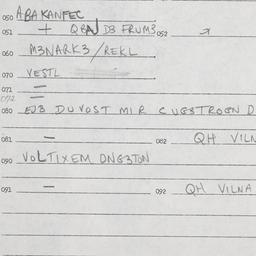 050 ABAKANFEC
051 + QRN DB FRUM3 052
060 M3NARK3/REKL
070 VESTL
071 —
072 —
080 EJ3 DUVOST MIR CUGSTROEN D
081 — 082 QH VILN
090 VOLTIXEM DNG3TON
091 — 092 QH VILNA